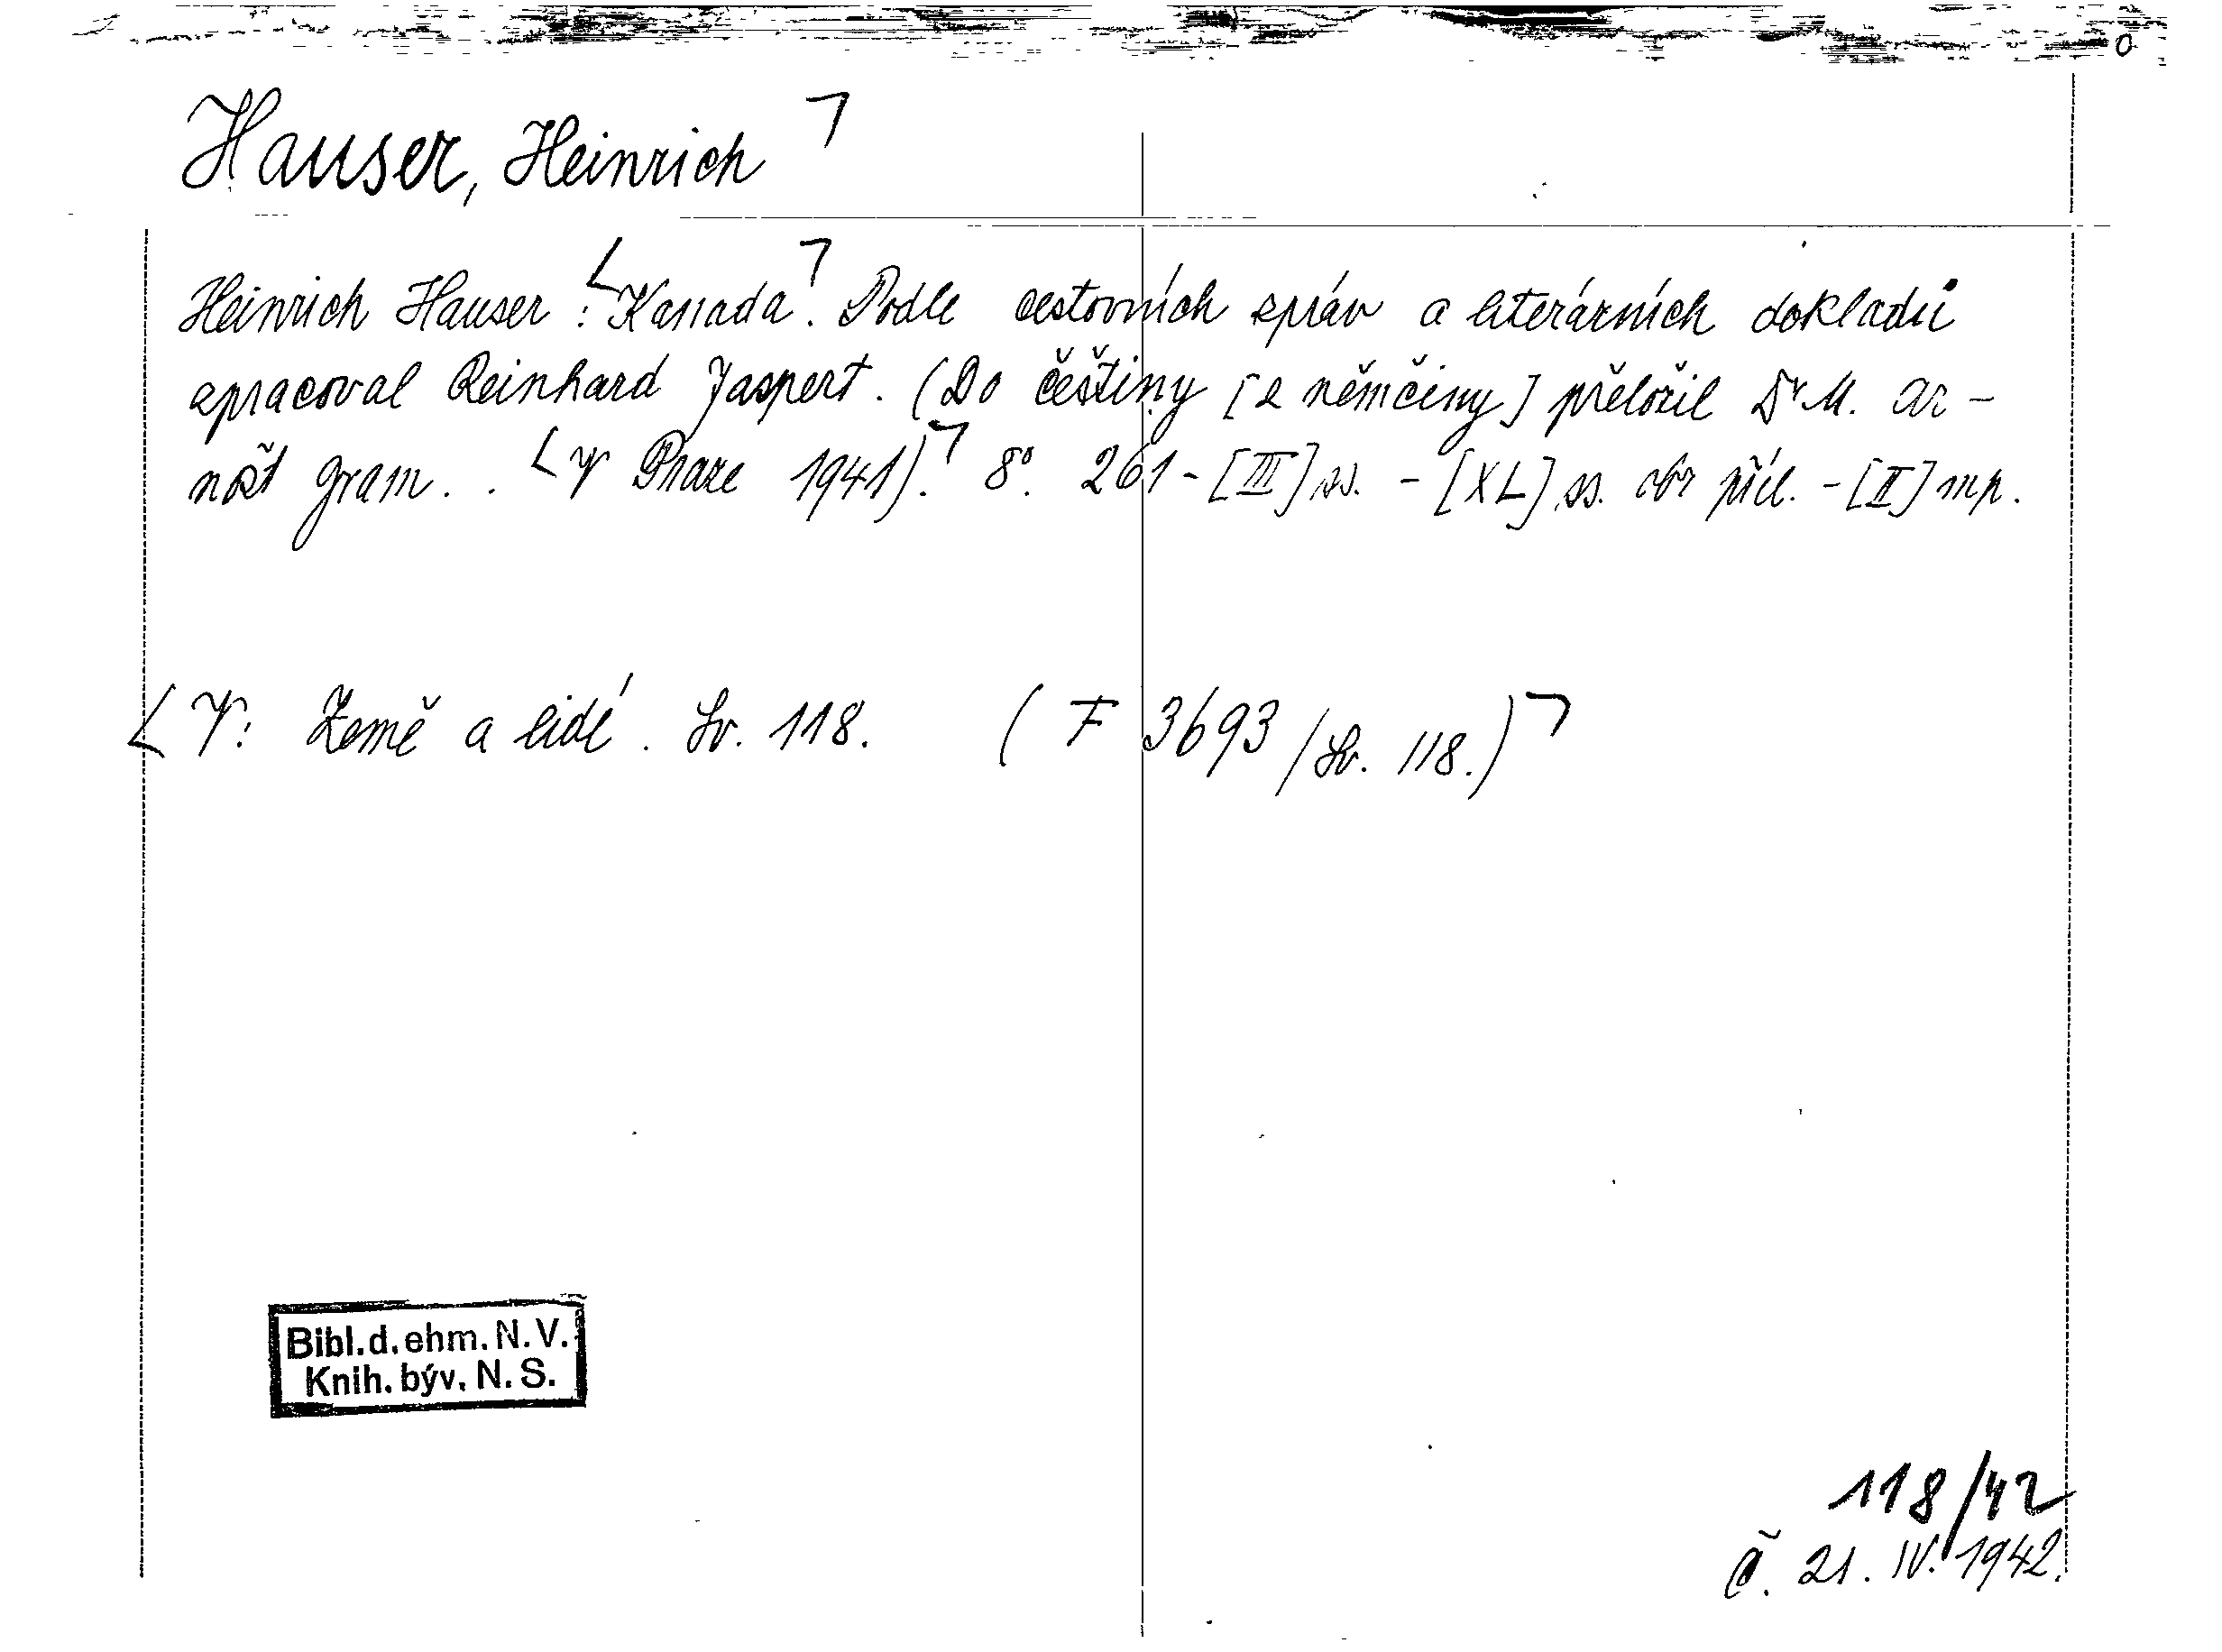 Hauser, Heinrich ⌝
Heinrich Hauser : ⌞Kanada⌝. Podle cestovních zpráv a literárních dokladů
zpracoval Reinhard Jaspert. (Do češtiny [z němčiny] přeložil Dr M. Ar-
nošt Gram. . ⌞V Praze 1941).⌝ 8°. 261-[III] ss. - [XL] ss. obr příl. - [II] mp.
⌞V: Země a lidé. Sv. 118. (F 3693/Sv. 118.)⌝
Bibl.d.ehm.N.V.
Knih.býv.N.S.
118/42
Č. 21. IV. 1942.